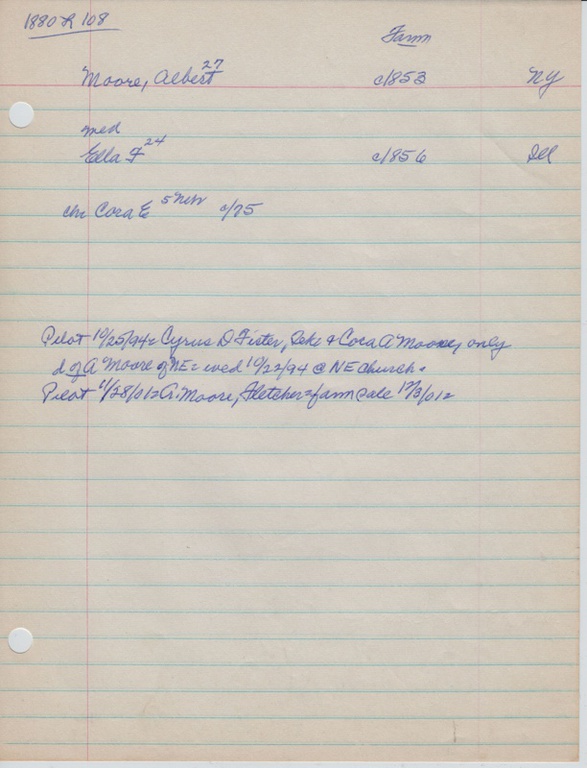 1880 R 108
Farm
Moore, Albert 27 c/1853 NY
med
Ella F 24 c/1856 Ill
chr Cora E 5 Neb c/75
Pilot 10/25/94= Cyrus D Fister, & Cora A Moore, only
d of A Moore of NE= wed 10/22/94 @ NE church.
Pilot 11/28/01= A. Moore, Fletcher=farm sale 12/3/01=